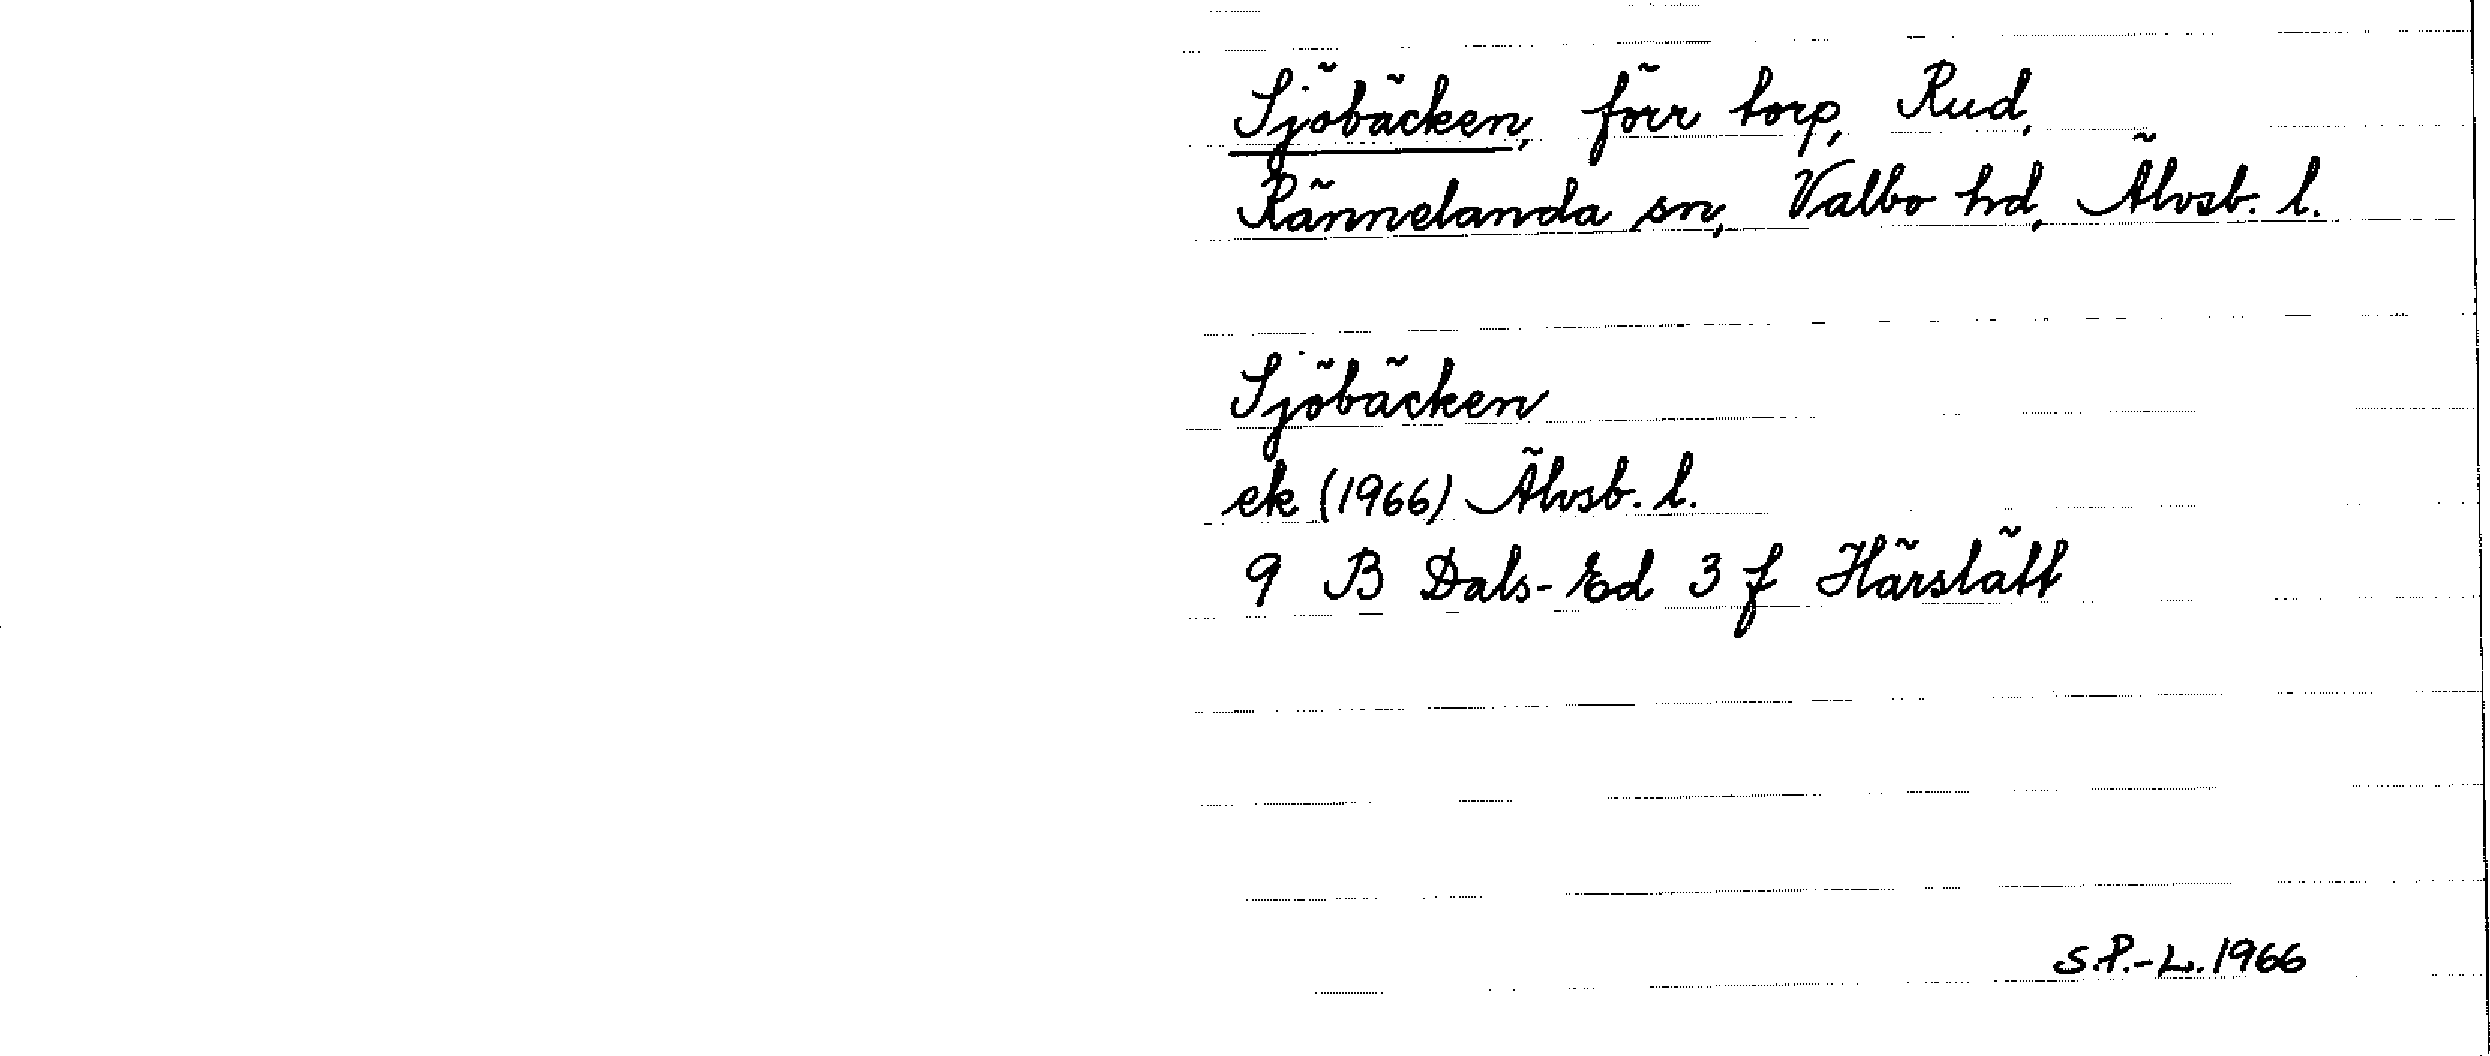 Sjöbäcken, förr torp, Rud,
Rännelanda sn, Valbo hd, Älvsb. l.
Sjöbäcken
ek (1966) Älvsb. l.
9 B Dals-Ed 3 f Härslätt
S.P.-L. 1966